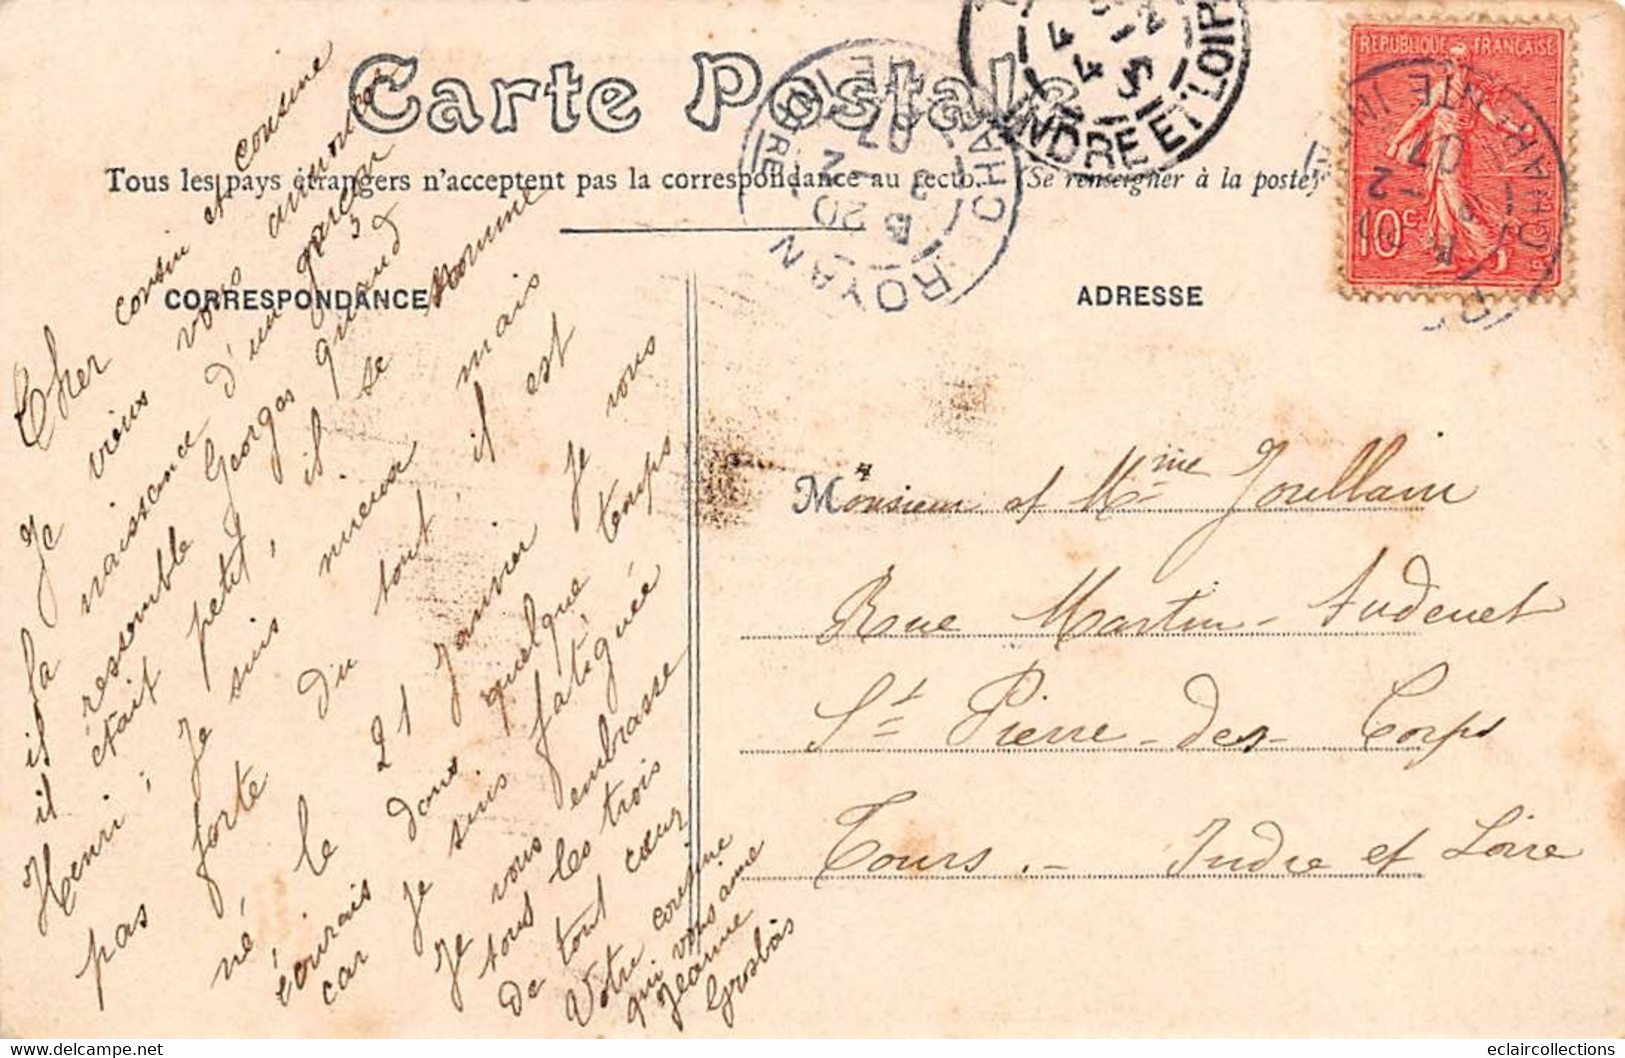 Carte Postale
Tous les pays étrangers n'acceptent pas la correspondance au recto. (Se renseigner à la poste)
CORRESPONDANCE
ADRESSE
Cher cousin et cousine
Je viens vous annoncer
la naissance d'un garçon
il ressemble Georges quand
il était petit, il se nomme
Henri, je suis mieux mais
pas forte du tout il est
né le 21 janvier Je vous
écrirais dans quelque temps
car je suis fatiguée
Je vous embrasse
tous les trois
de tout cœur
Votre cousine
qui vous aime
Jeanne
Grosbois
Monsieur et Mme Joullain
Rue Martin-Audenet
St Pierre-des-Corps
Tours.- Indre et Loire
REPUBLIQUE FRANÇAISE
10c
ROYAN
CHARTE INFRE
B
20
2
07
INDRE ET LOIRE
eclaircollections
www.delcampe.net